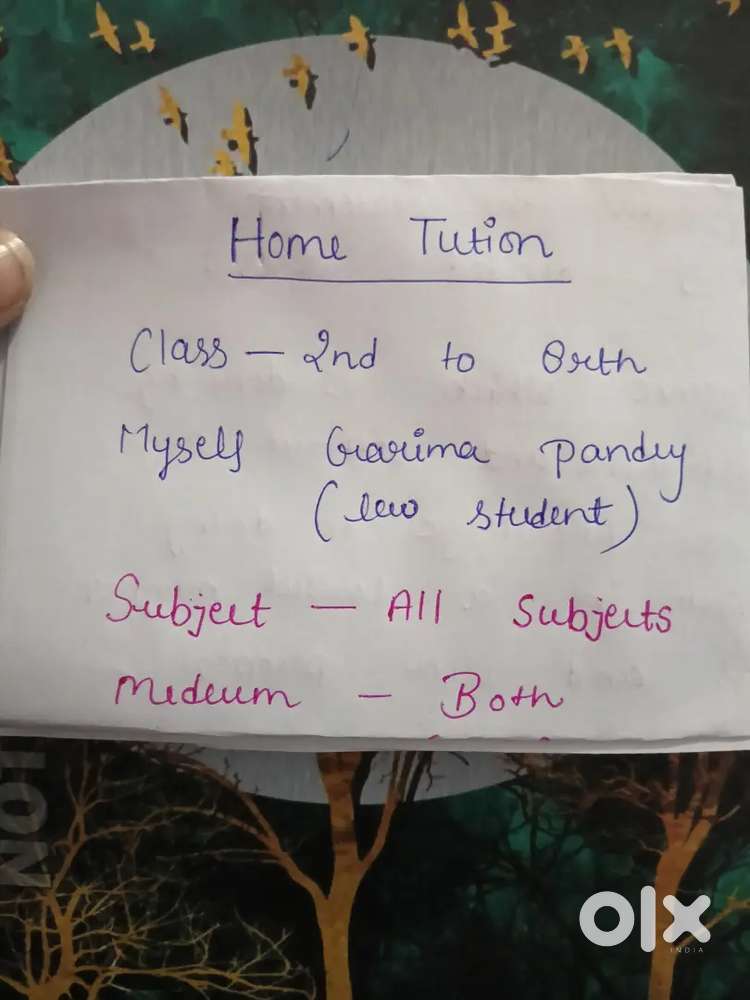 Home Tution
Class — 2nd to
Myself Garima Pandey
(law student)
Subject — All Subjects
Medeum — Both
olx
INDIA